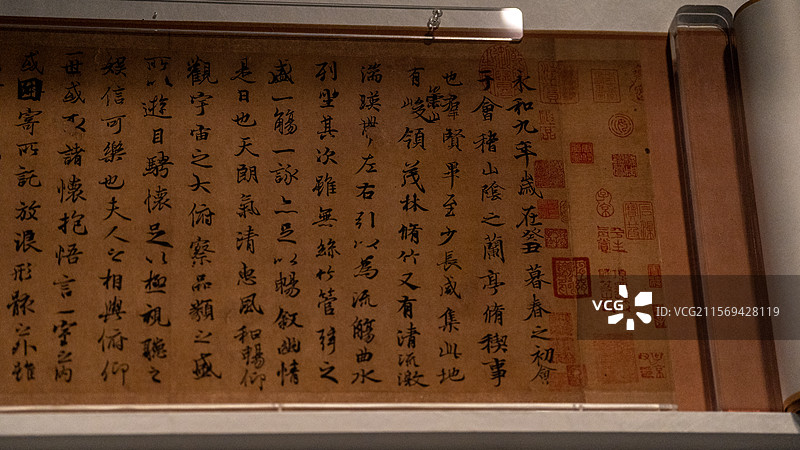 永和九年歲在癸丑暮春之初會
于會稽山陰之蘭亭脩稧事
也羣賢畢至少長咸集此地
有崇山峻領茂林脩竹又有清流激
湍暎帶左右引以為流觴曲水
列坐其次雖無絲竹管弦之
盛一觴一詠亦足以暢敘幽情
是日也天朗氣清惠風和暢仰
觀宇宙之大俯察品類之盛
所以遊目騁懷足以極視聽之
娛信可樂也夫人之相與俯仰
一世或取諸懷抱悟言一室之內
或因寄所託放浪形骸之外雖
VCG
ID:VCG211569428119